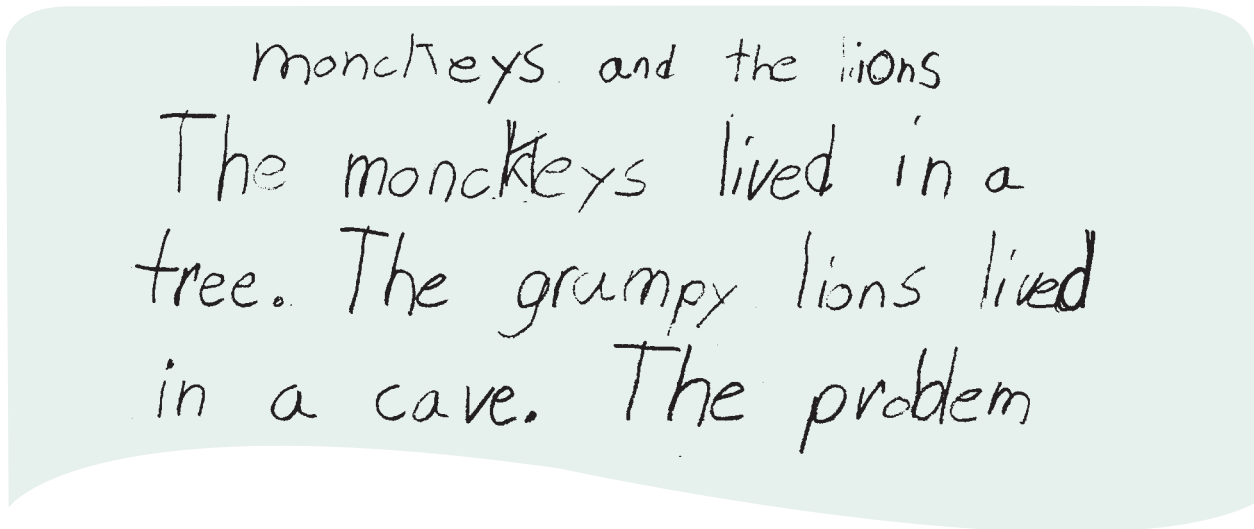 monckeys and the lions
The monckeys lived in a
tree. The grumpy lions lived
in a cave. The problem